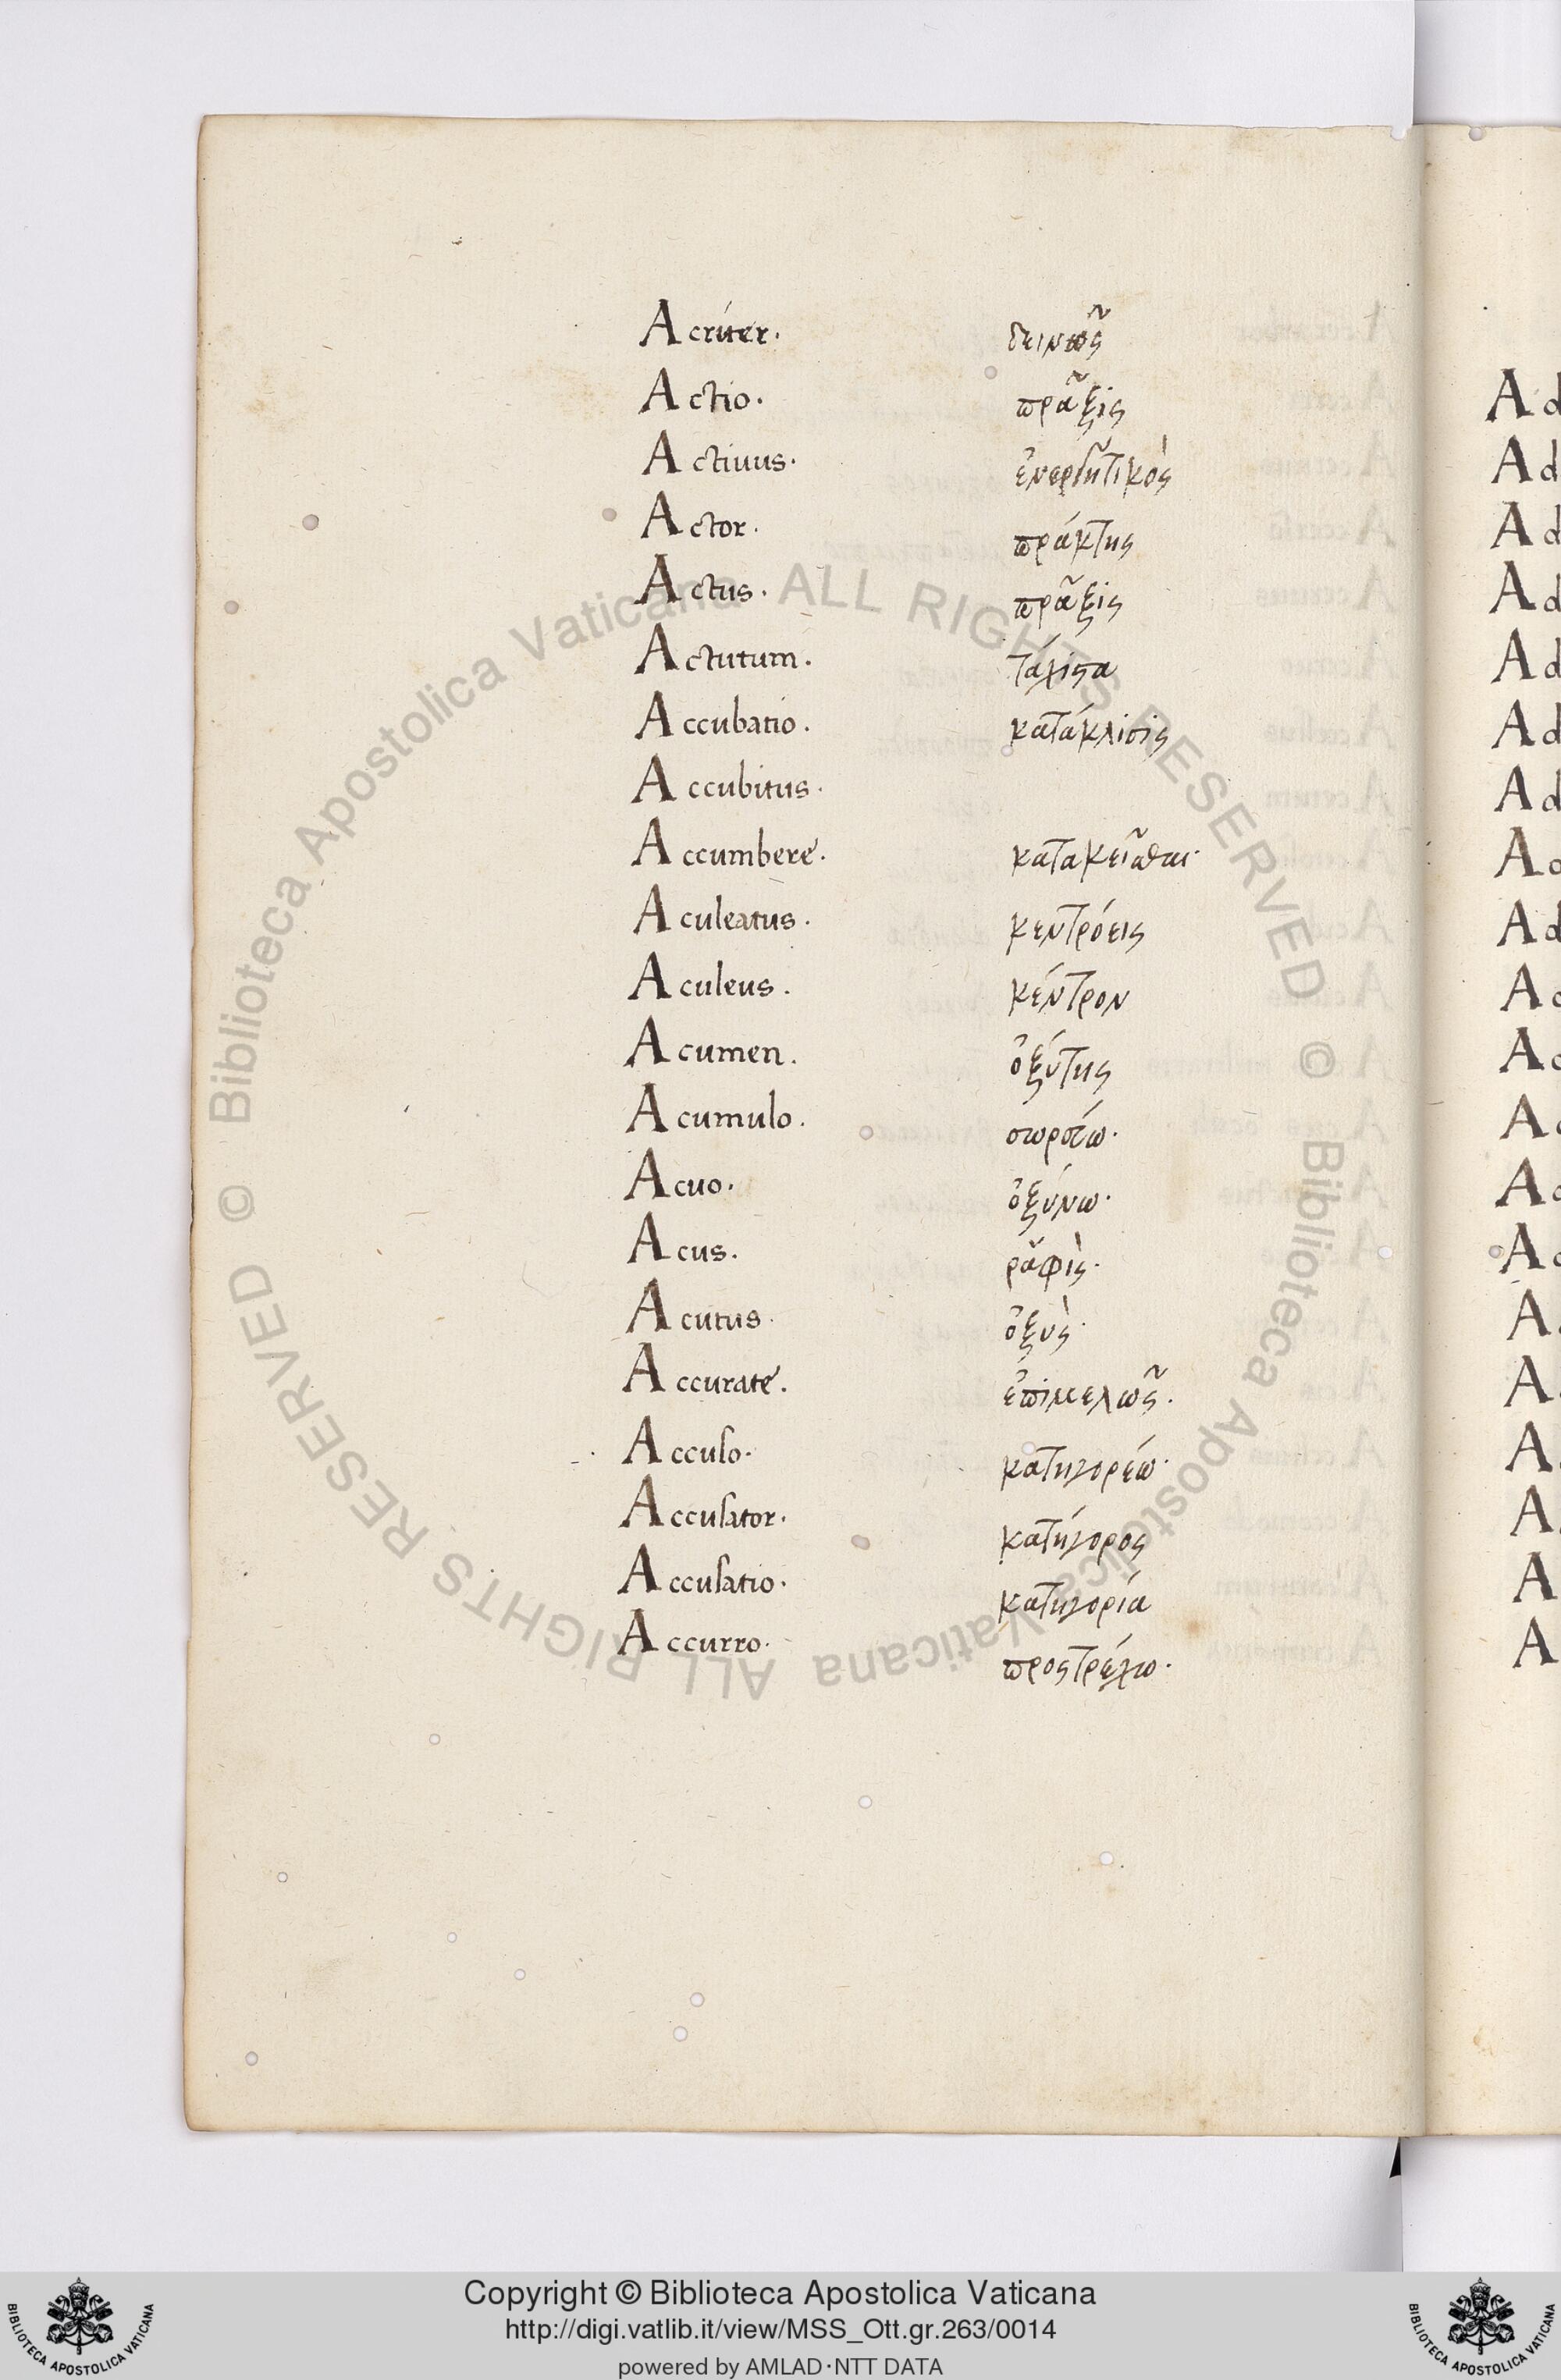 Acriter. δεινῶς
Actio. πρᾶξις
Actiuus. ἐνεργητικὸς
Actor. πράκτης
Actus. πρᾶξις
Actutum. τάχιστα
Accubatio. κατάκλισις
Accubitus.
Accumbere. κατακεῖσθαι.
Aculeatus. κεντρόεις
Aculeus. κέντρον
Acumen. ὀξύτης
Acumulo.
Acuo. ὀξύνω.
Acus. ῥαφὶς.
Acutus. ὀξὺς.
Accurate. ἐπιμελῶς.
Accuso. κατηγορέω.
Accusator. κατήγορος
Accusatio. κατηγορία
Accurro. προστρέχω.
Ad
Ad
Ad
Ad
Ad
Ad
Ad
A
Ad
A
A
A
A
A
A
A
A
A
A
A
© Biblioteca Apostolica Vaticana ALL RIGHTS RESERVED © Biblioteca Apostolica Vaticana ALL RIGHTS RESERVED
Copyright © Biblioteca Apostolica Vaticana
http://digi.vatlib.it/view/MSS_Ott.gr.263/0014
powered by AMLAD·NTT DATA
BIBLIOTECA APOSTOLICA VATICANA
BIBLIOTECA APOSTOLICA VATICANA